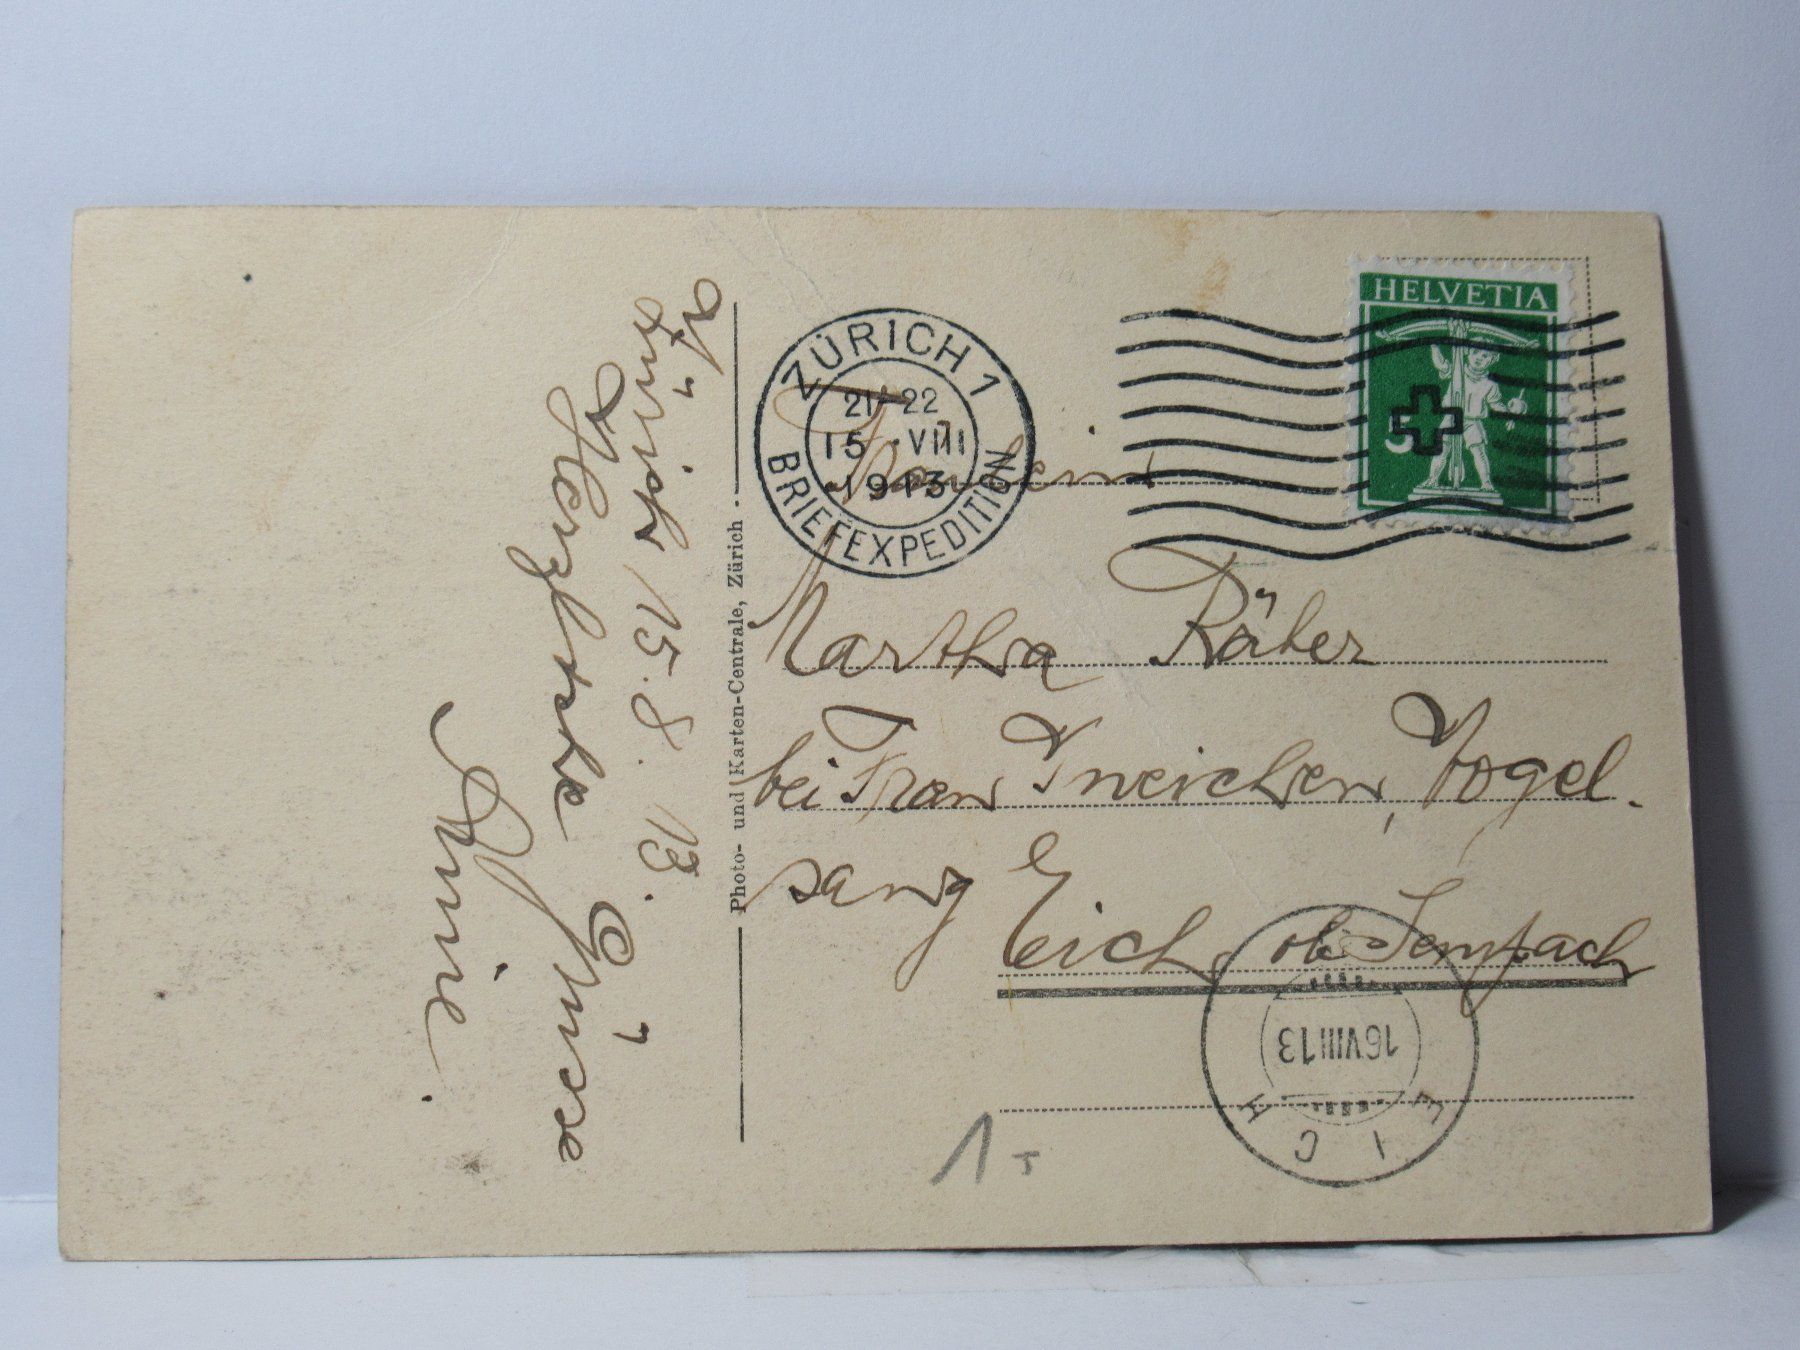 Zürich 15. 8. 13.
Herzlichste Grüsse
Photo- und Karten-Centrale, Zürich
ZÜRICH 1
21-22
15. VIII
1913
BRIEFEXPEDITION
HELVETIA
5
Fräulein
Martha Räber
bei Frau Ineichen, Vogel-
sang
Eich, ob Sempach
16 VIII 13
EICH
1